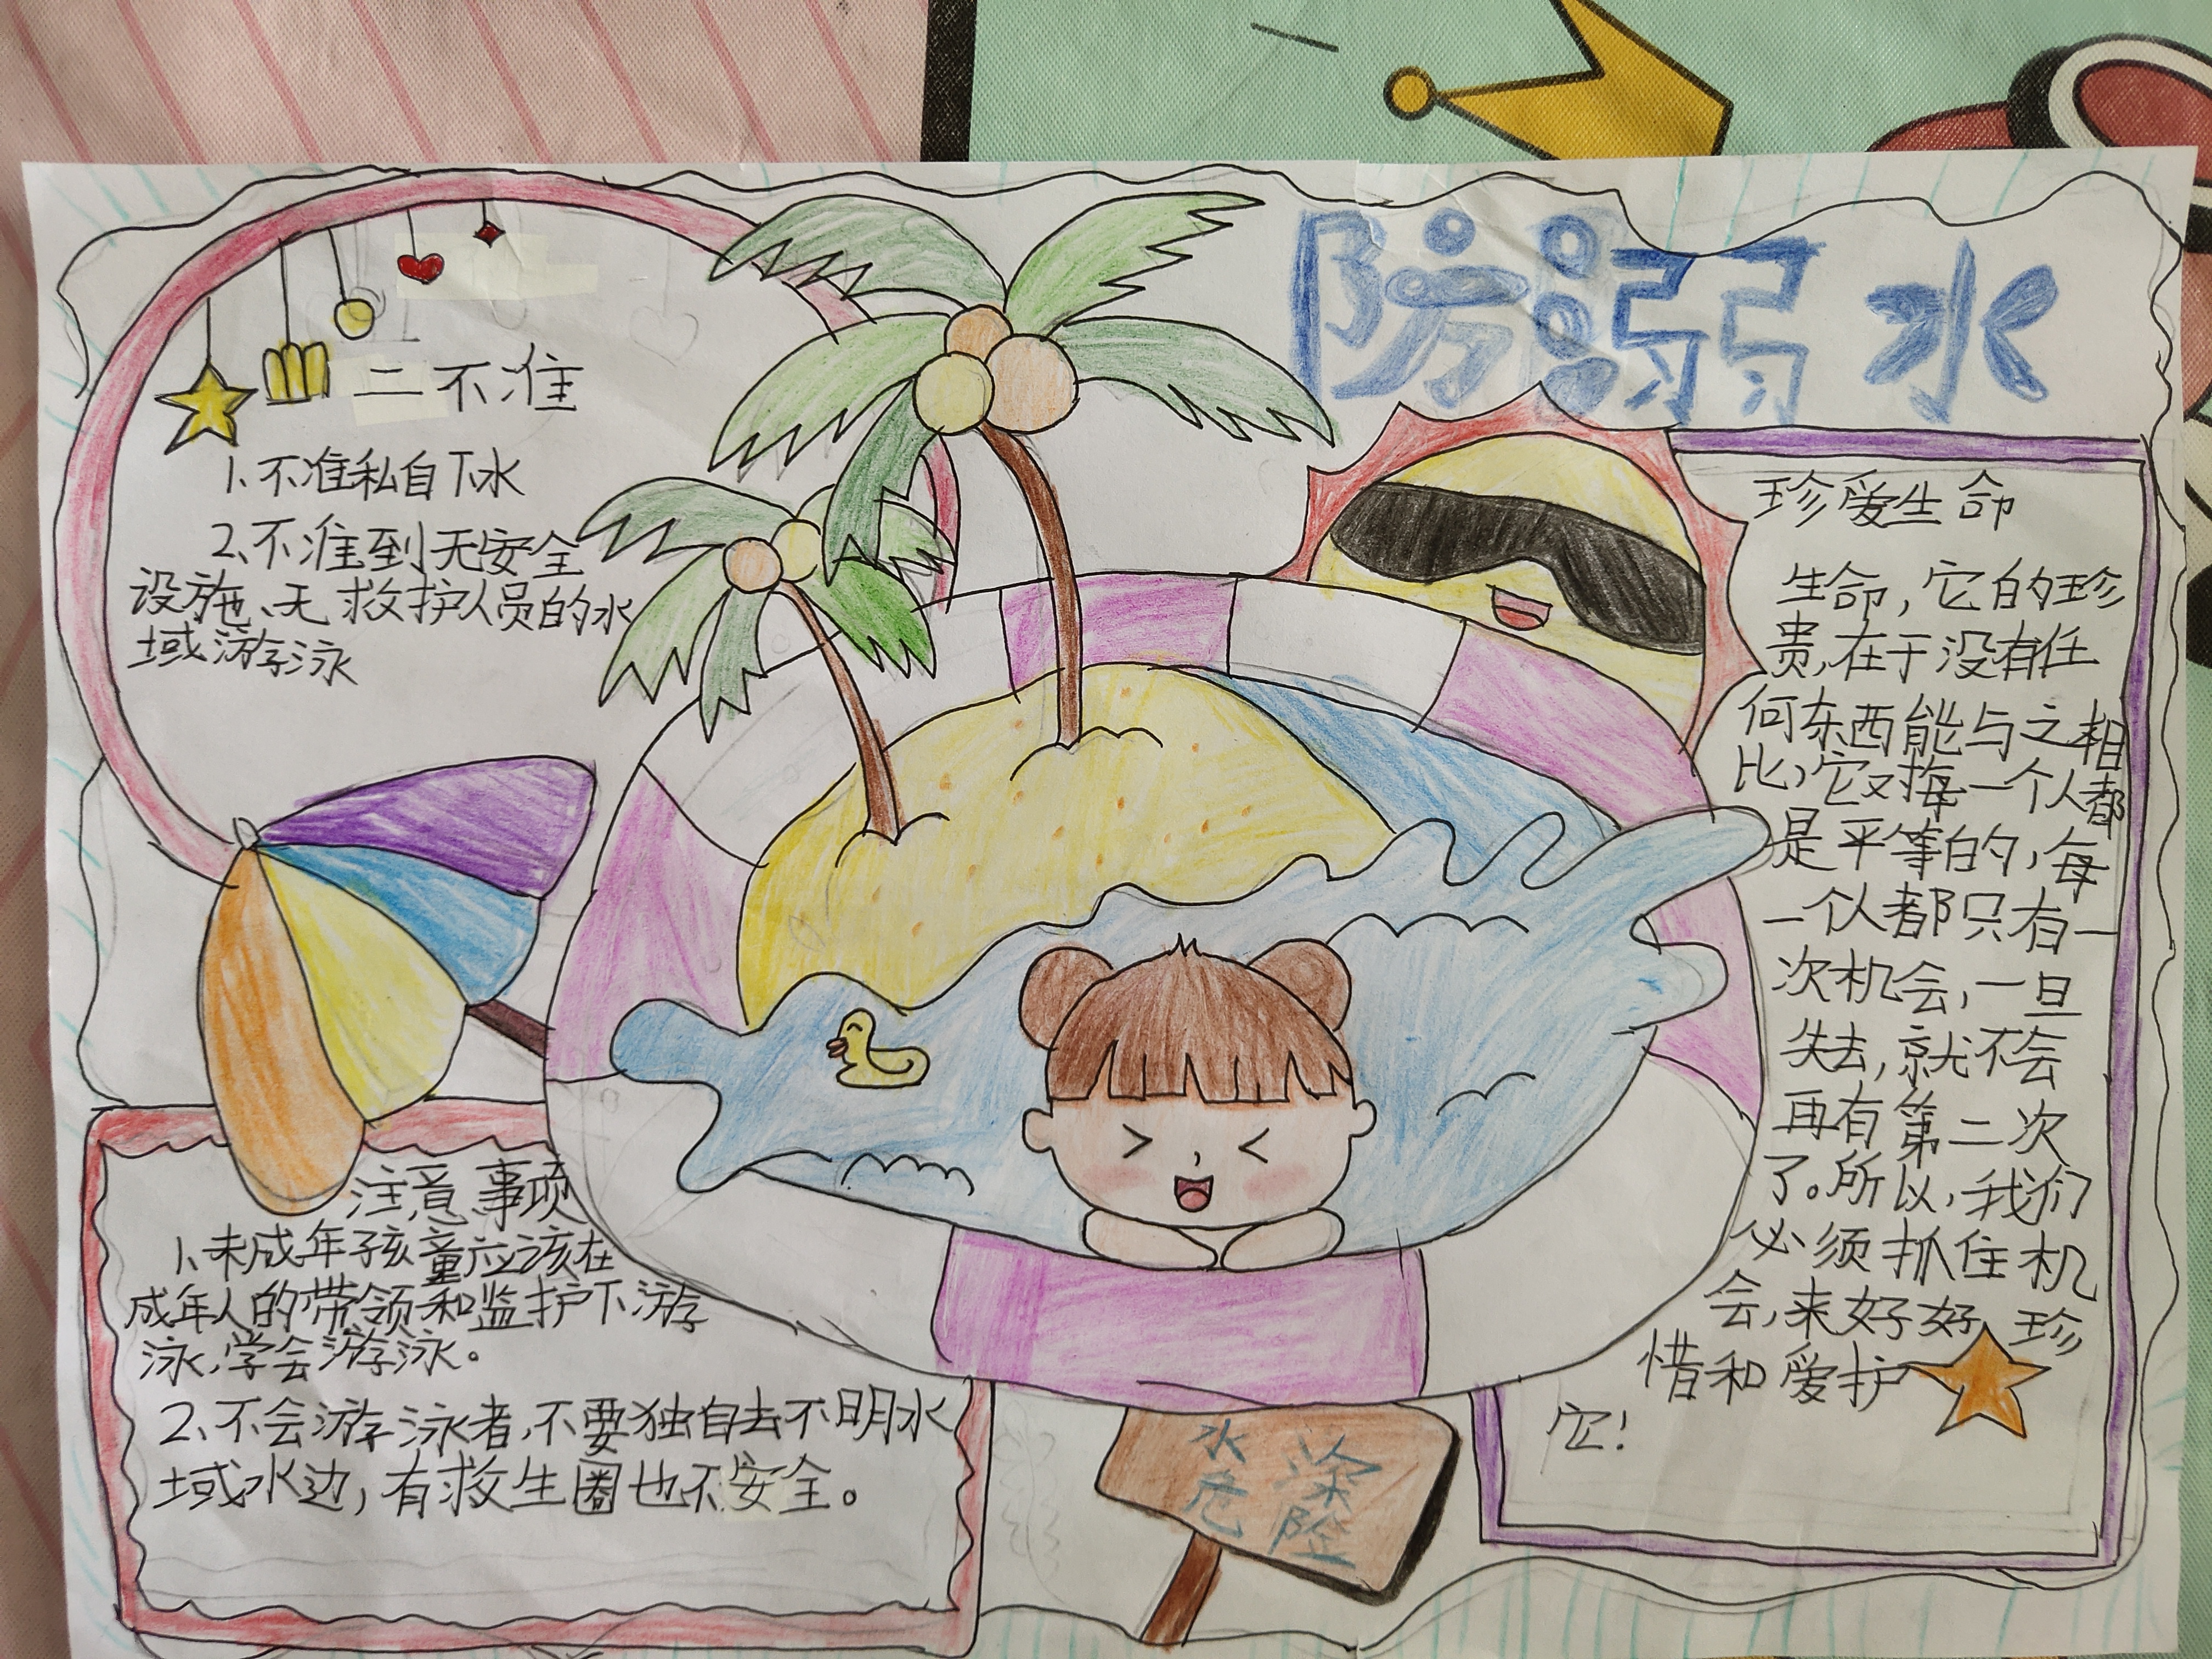 防溺水
二不准
1、不准私自下水
2、不准到无安全
设施、无救护人员的水
域游泳
注意事项
1、未成年孩童应该在
成年人的带领和监护下游
泳,学会游泳。
2、不会游泳者,不要独自去不明水
域水边,有救生圈也不安全。
珍爱生命
生命,它的珍
贵,在于没有任
何东西能与之相
比,它对每一个人都
是平等的,每
一个人都只有一
次机会,一旦
失去,就不会
再有第二次
了。所以,我们
必须抓住机
会,来好好珍
惜和爱护
它!
水深
危险